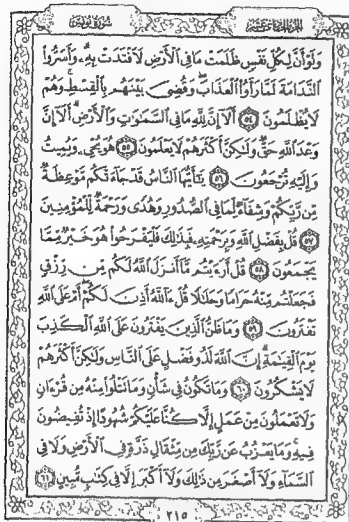 سورة يونس
الجزء الحادي عشر
وَلَوْ أَنَّ لِكُلِّ نَفْسٍ ظَلَمَتْ مَا فِي ٱلْأَرْضِ لَٱفْتَدَتْ بِهِۦ وَأَسَرُّوا۟
ٱلنَّدَامَةَ لَمَّا رَأَوُا۟ ٱلْعَذَابَ وَقُضِىَ بَيْنَهُم بِٱلْقِسْطِ وَهُمْ
لَا يُظْلَمُونَ ٥٤ أَلَآ إِنَّ لِلَّهِ مَا فِي ٱلسَّمَٰوَٰتِ وَٱلْأَرْضِ أَلَآ إِنَّ
وَعْدَ ٱللَّهِ حَقٌّ وَلَٰكِنَّ أَكْثَرَهُمْ لَا يَعْلَمُونَ ٥٥ هُوَ يُحْىِۦ وَيُمِيتُ
وَإِلَيْهِ تُرْجَعُونَ ٥٦ يَٰٓأَيُّهَا ٱلنَّاسُ قَدْ جَآءَتْكُم مَّوْعِظَةٌ
مِّن رَّبِّكُمْ وَشِفَآءٌ لِّمَا فِي ٱلصُّدُورِ وَهُدًى وَرَحْمَةٌ لِّلْمُؤْمِنِينَ
٥٧ قُلْ بِفَضْلِ ٱللَّهِ وَبِرَحْمَتِهِۦ فَبِذَٰلِكَ فَلْيَفْرَحُوا۟ هُوَ خَيْرٌ مِّمَّا
يَجْمَعُونَ ٥٨ قُلْ أَرَءَيْتُم مَّآ أَنزَلَ ٱللَّهُ لَكُم مِّن رِّزْقٍ
فَجَعَلْتُم مِّنْهُ حَرَامًا وَحَلَٰلًا قُلْ ءَآللَّهُ أَذِنَ لَكُمْ أَمْ عَلَى ٱللَّهِ
تَفْتَرُونَ ٥٩ وَمَا ظَنُّ ٱلَّذِينَ يَفْتَرُونَ عَلَى ٱللَّهِ ٱلْكَذِبَ
يَوْمَ ٱلْقِيَٰمَةِ إِنَّ ٱللَّهَ لَذُو فَضْلٍ عَلَى ٱلنَّاسِ وَلَٰكِنَّ أَكْثَرَهُمْ
لَا يَشْكُرُونَ ٦٠ وَمَا تَكُونُ فِي شَأْنٍ وَمَا تَتْلُوا۟ مِنْهُ مِن قُرْءَانٍ
وَلَا تَعْمَلُونَ مِنْ عَمَلٍ إِلَّا كُنَّا عَلَيْكُمْ شُهُودًا إِذْ تُفِيضُونَ
فِيهِ وَمَا يَعْزُبُ عَن رَّبِّكَ مِن مِّثْقَالِ ذَرَّةٍ فِي ٱلْأَرْضِ وَلَا فِي
ٱلسَّمَآءِ وَلَآ أَصْغَرَ مِن ذَٰلِكَ وَلَآ أَكْبَرَ إِلَّا فِي كِتَٰبٍ مُّبِينٍ ٦١
٢١٥